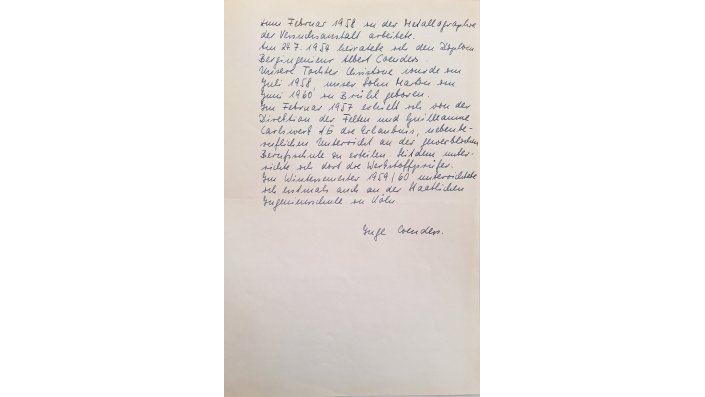 zum Februar 1958 in der Metallographie
der Versuchsanstalt arbeitete.
Am 24.7.1954 heiratete ich den Diplom
Bergingenieur Albert Coenders.
Unsere Tochter Christine wurde im
Juli 1958, unser Sohn Marlon im
Juni 1960 in Brühl geboren.
Im Februar 1957 erhielt ich von der
Direktion der Felten und Guilleaume
Carlswerk AG die Erlaubnis, nebenbe-
ruflichen Unterricht an der gewerblichen
Berufsschule zu erteilen. Seitdem unter-
richte ich dort die Werkstoffprüfer.
Im Wintersemester 1959/60 unterrichtete
ich erstmals auch an der Staatlichen
Ingenieurschule in Köln
Inge Coenders.